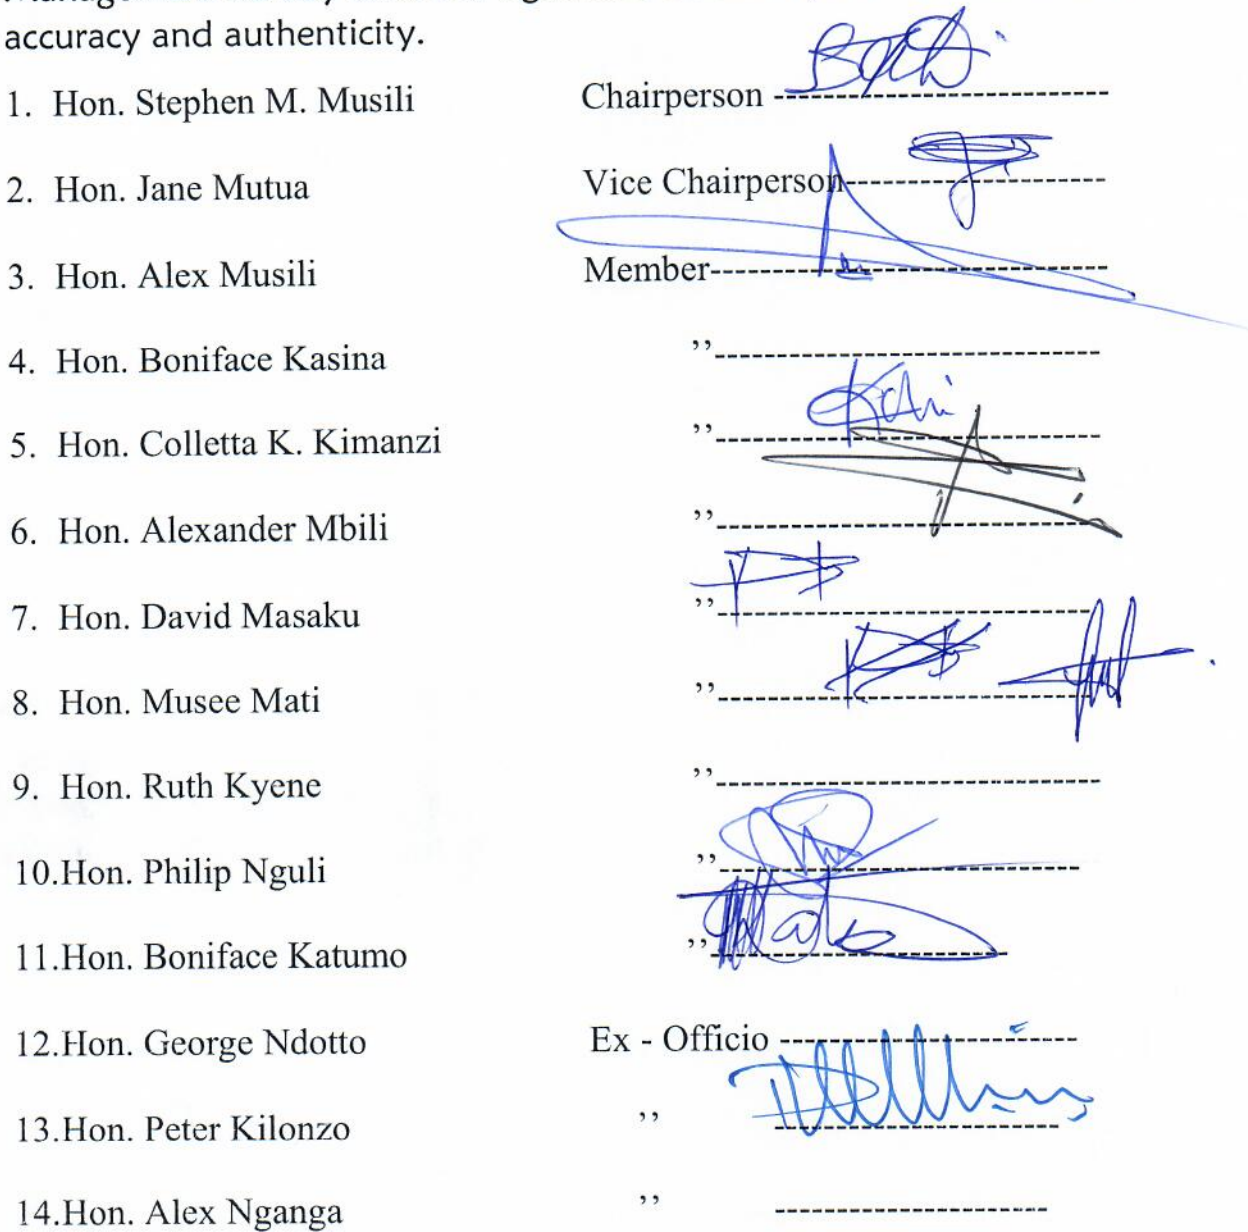 accuracy and authenticity.
1. Hon. Stephen M. Musili Chairperson ----------------------------
2. Hon. Jane Mutua Vice Chairperson----------------------
3. Hon. Alex Musili Member---------------------------------
4. Hon. Boniface Kasina ,,--------------------------------
5. Hon. Colletta K. Kimanzi ,,--------------------------------
6. Hon. Alexander Mbili ,,--------------------------------
7. Hon. David Masaku ,,--------------------------------
8. Hon. Musee Mati ,,--------------------------------
9. Hon. Ruth Kyene ,,--------------------------------
10.Hon. Philip Nguli ,,------------------------------
11.Hon. Boniface Katumo ,,-------------------------
12.Hon. George Ndotto Ex - Officio -------------------------
13.Hon. Peter Kilonzo ,, ------------------------
14.Hon. Alex Nganga ,, -----------------------